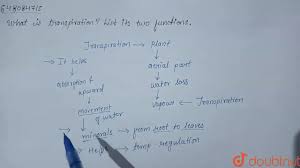 648084715
What is transpiration? List its two functions.
Transpiration → Plant
→ It helps
aerial part
absorption &
upward
water loss
movement
of water
vapours ← Transpiration
→ minerals → from root to leaves
→ Help temp regulation
doubtnut